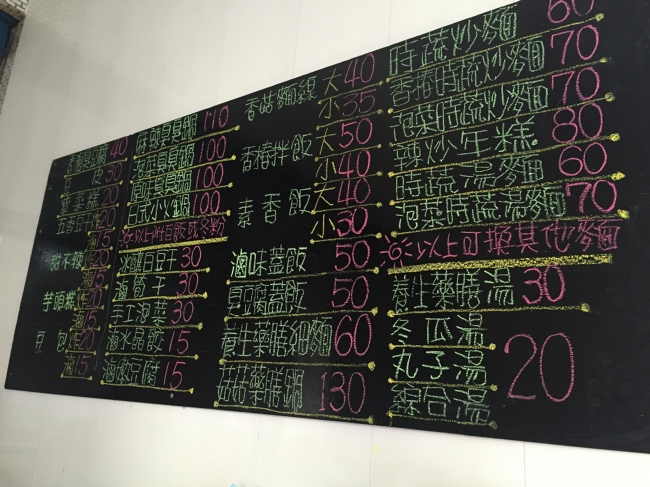 時蔬炒麵 60
香椿時蔬炒麵 70
泡菜時蔬炒麵 70
辣炒年糕 80
時蔬湯麵 60
泡菜時蔬湯麵 70
※以上可換其他麵
養生藥膳湯 30
冬瓜湯
丸子湯 20
綜合湯
香菇麵線 大40
小35
香椿拌飯 大50
小40
素香飯 大40
小30
滷味蓋飯 50
臭豆腐蓋飯 50
養生藥膳細麵 60
菇菇藥膳鍋 130
麻辣臭臭鍋 110
泡菜臭臭鍋 100
臭臭鍋 100
日式小火鍋 100
※以上附白飯或冬粉
冰釀白豆干 30
滷筍干 30
手工泡菜 30
滷水晶餃 15
滷嫩豆腐 15
臭豆腐 40
豆 皮 30
蘿蔔糕 20
五香豆干 炸20
滷15
甜不辣 炸20
芋頭粿 炸20
滷15
豆 包 炸20
滷15